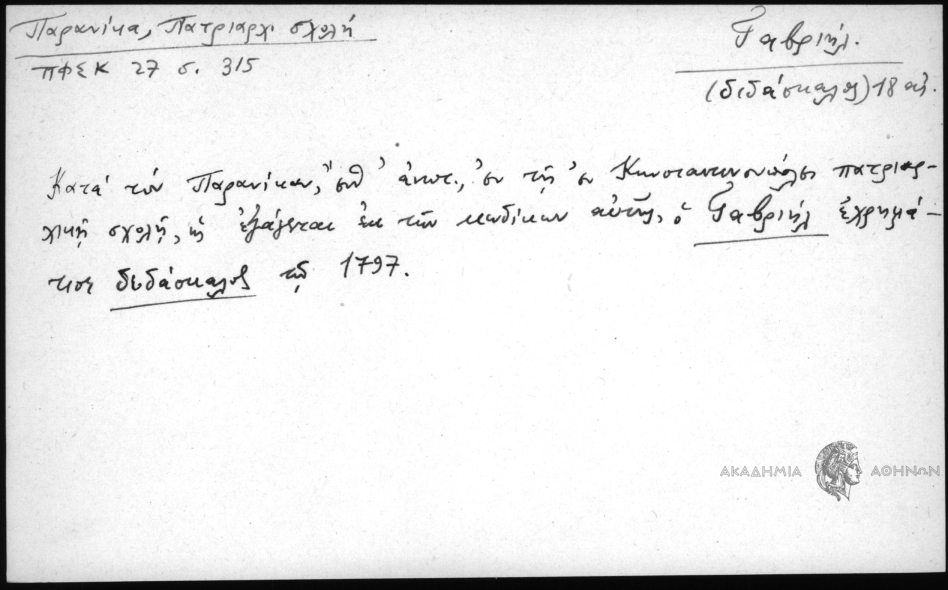 Παρανίκα, Πατριαρχ. σχολή
ΠΦΣΚ 27 σ. 315
Γαβριήλ.
(διδάσκαλος) 18 αἰ.
Κατά τόν Παρανίκαν, ἀνωτ., ἐν τῇ ἐν Κωνσταντινουπόλει πατριαρ-
χικῇ σχολῇ, ὡς ἐξάγεται ἐκ τῶν κωδίκων αὐτῆς, ὁ Γαβριήλ ἐχρημά-
τισε διδάσκαλος τῷ 1797.
ΑΚΑΔΗΜΙΑ ΑΘΗΝΩΝ